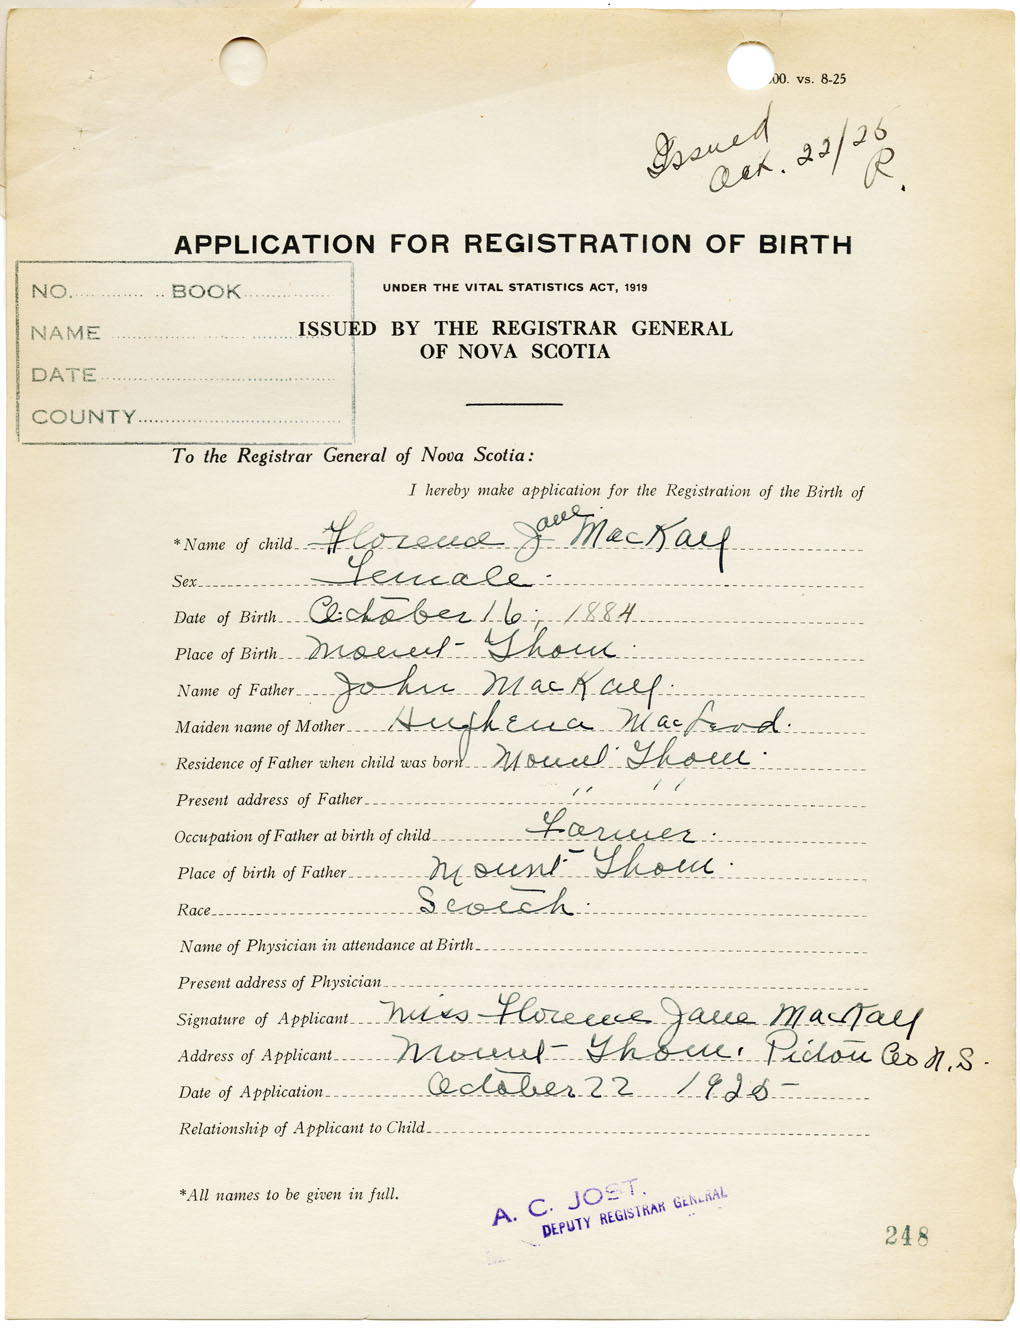 00. vs. 8-25
Issued
Oct. 22/25
R.
APPLICATION FOR REGISTRATION OF BIRTH
UNDER THE VITAL STATISTICS ACT, 1919
ISSUED BY THE REGISTRAR GENERAL
OF NOVA SCOTIA
NO. BOOK
NAME
DATE
COUNTY
To the Registrar General of Nova Scotia:
I hereby make application for the Registration of the Birth of
*Name of child Florence Jane MacKay
Sex Female.
Date of Birth October 16, 1884
Place of Birth Mount Thom.
Name of Father John MacKay.
Maiden name of Mother Hughena MacLeod.
Residence of Father when child was born Mount Thom.
Present address of Father " "
Occupation of Father at birth of child Farmer.
Place of birth of Father Mount Thom.
Race Scotch.
Name of Physician in attendance at Birth
Present address of Physician
Signature of Applicant Miss Florence Jane MacKay
Address of Applicant Mount Thom, Pictou Co N.S.
Date of Application October 22 1925
Relationship of Applicant to Child
*All names to be given in full.
A. C. JOST,
DEPUTY REGISTRAR GENERAL
248